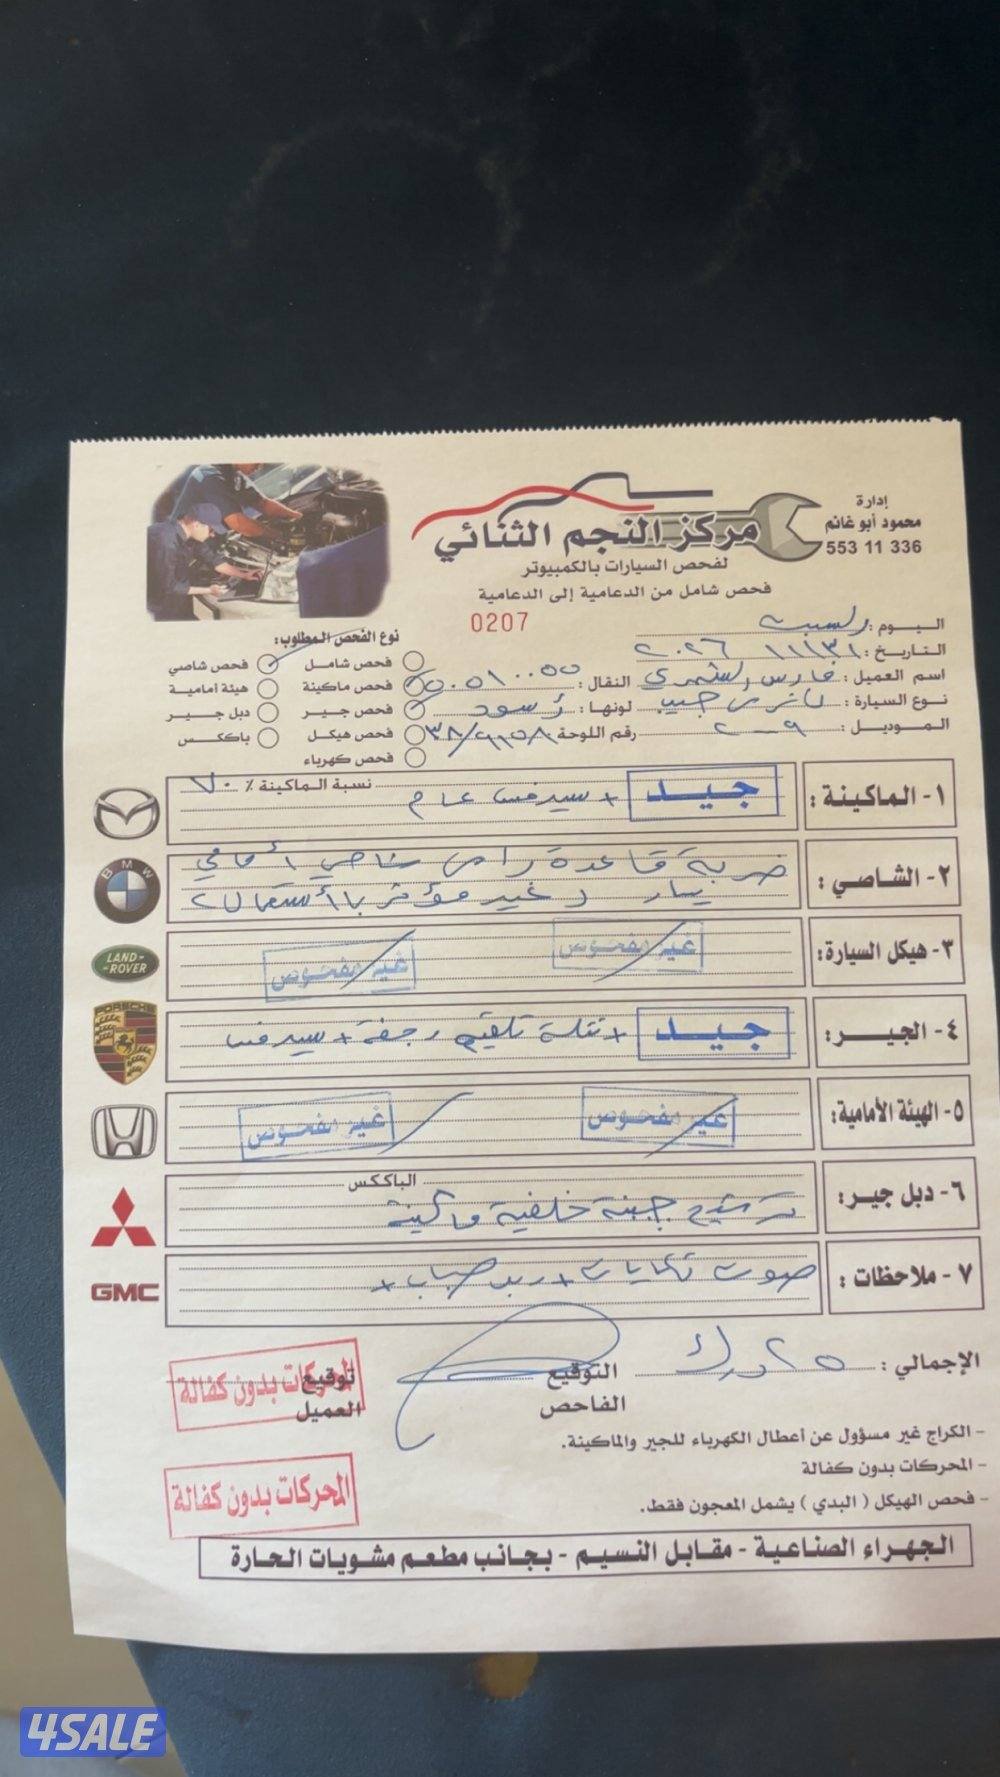 إدارة
محمود أبو غانم
553 11 336
مركز النجم الثنائي
لفحص السيارات بالكمبيوتر
فحص شامل من الدعامية إلى الدعامية
0207
اليوم : السبت
التاريخ :
اسم العميل : فارس الشمري النقال : ٥٠٥١٠٠٥٥
نوع السيارة : جيب لونها : أسود
الموديل : ٢٠٠٩ رقم اللوحة
نوع الفحص المطلوب :
فحص شامل فحص شاصي
فحص ماكينة هيئة امامية
فحص جير دبل جير
فحص هيكل باككس
فحص كهرباء
١- الماكينة : جيد + سيرفس عام نسبة الماكينة ٪ ٧٠
٢- الشاصي : ضربة قاعدة راس شاصي أمامي
يسار ( غير مؤثر بالأستعمال )
٣- هيكل السيارة : غير مفحوص غير مفحوص
٤- الجير : جيد + نتلة تلقيم رجفة + سيرفس
٥- الهيئة الأمامية : غير مفحوص غير مفحوص
٦- دبل جير : الباككس
ترشيح جبنة خلفية ماكينة
٧- ملاحظات : صوت
الإجمالي : ٢٥ د.ك
التوقيع
الفاحص
توقيع
العميل
المحركات بدون كفالة
المحركات بدون كفالة
- الكراج غير مسؤول عن أعطال الكهرباء للجير والماكينة.
- المحركات بدون كفالة
- فحص الهيكل ( البدي ) يشمل المعجون فقط.
الجهراء الصناعية - مقابل النسيم - بجانب مطعم مشويات الحارة
BMW
LAND-
-ROVER
PORSCHE
GMC
4SALE